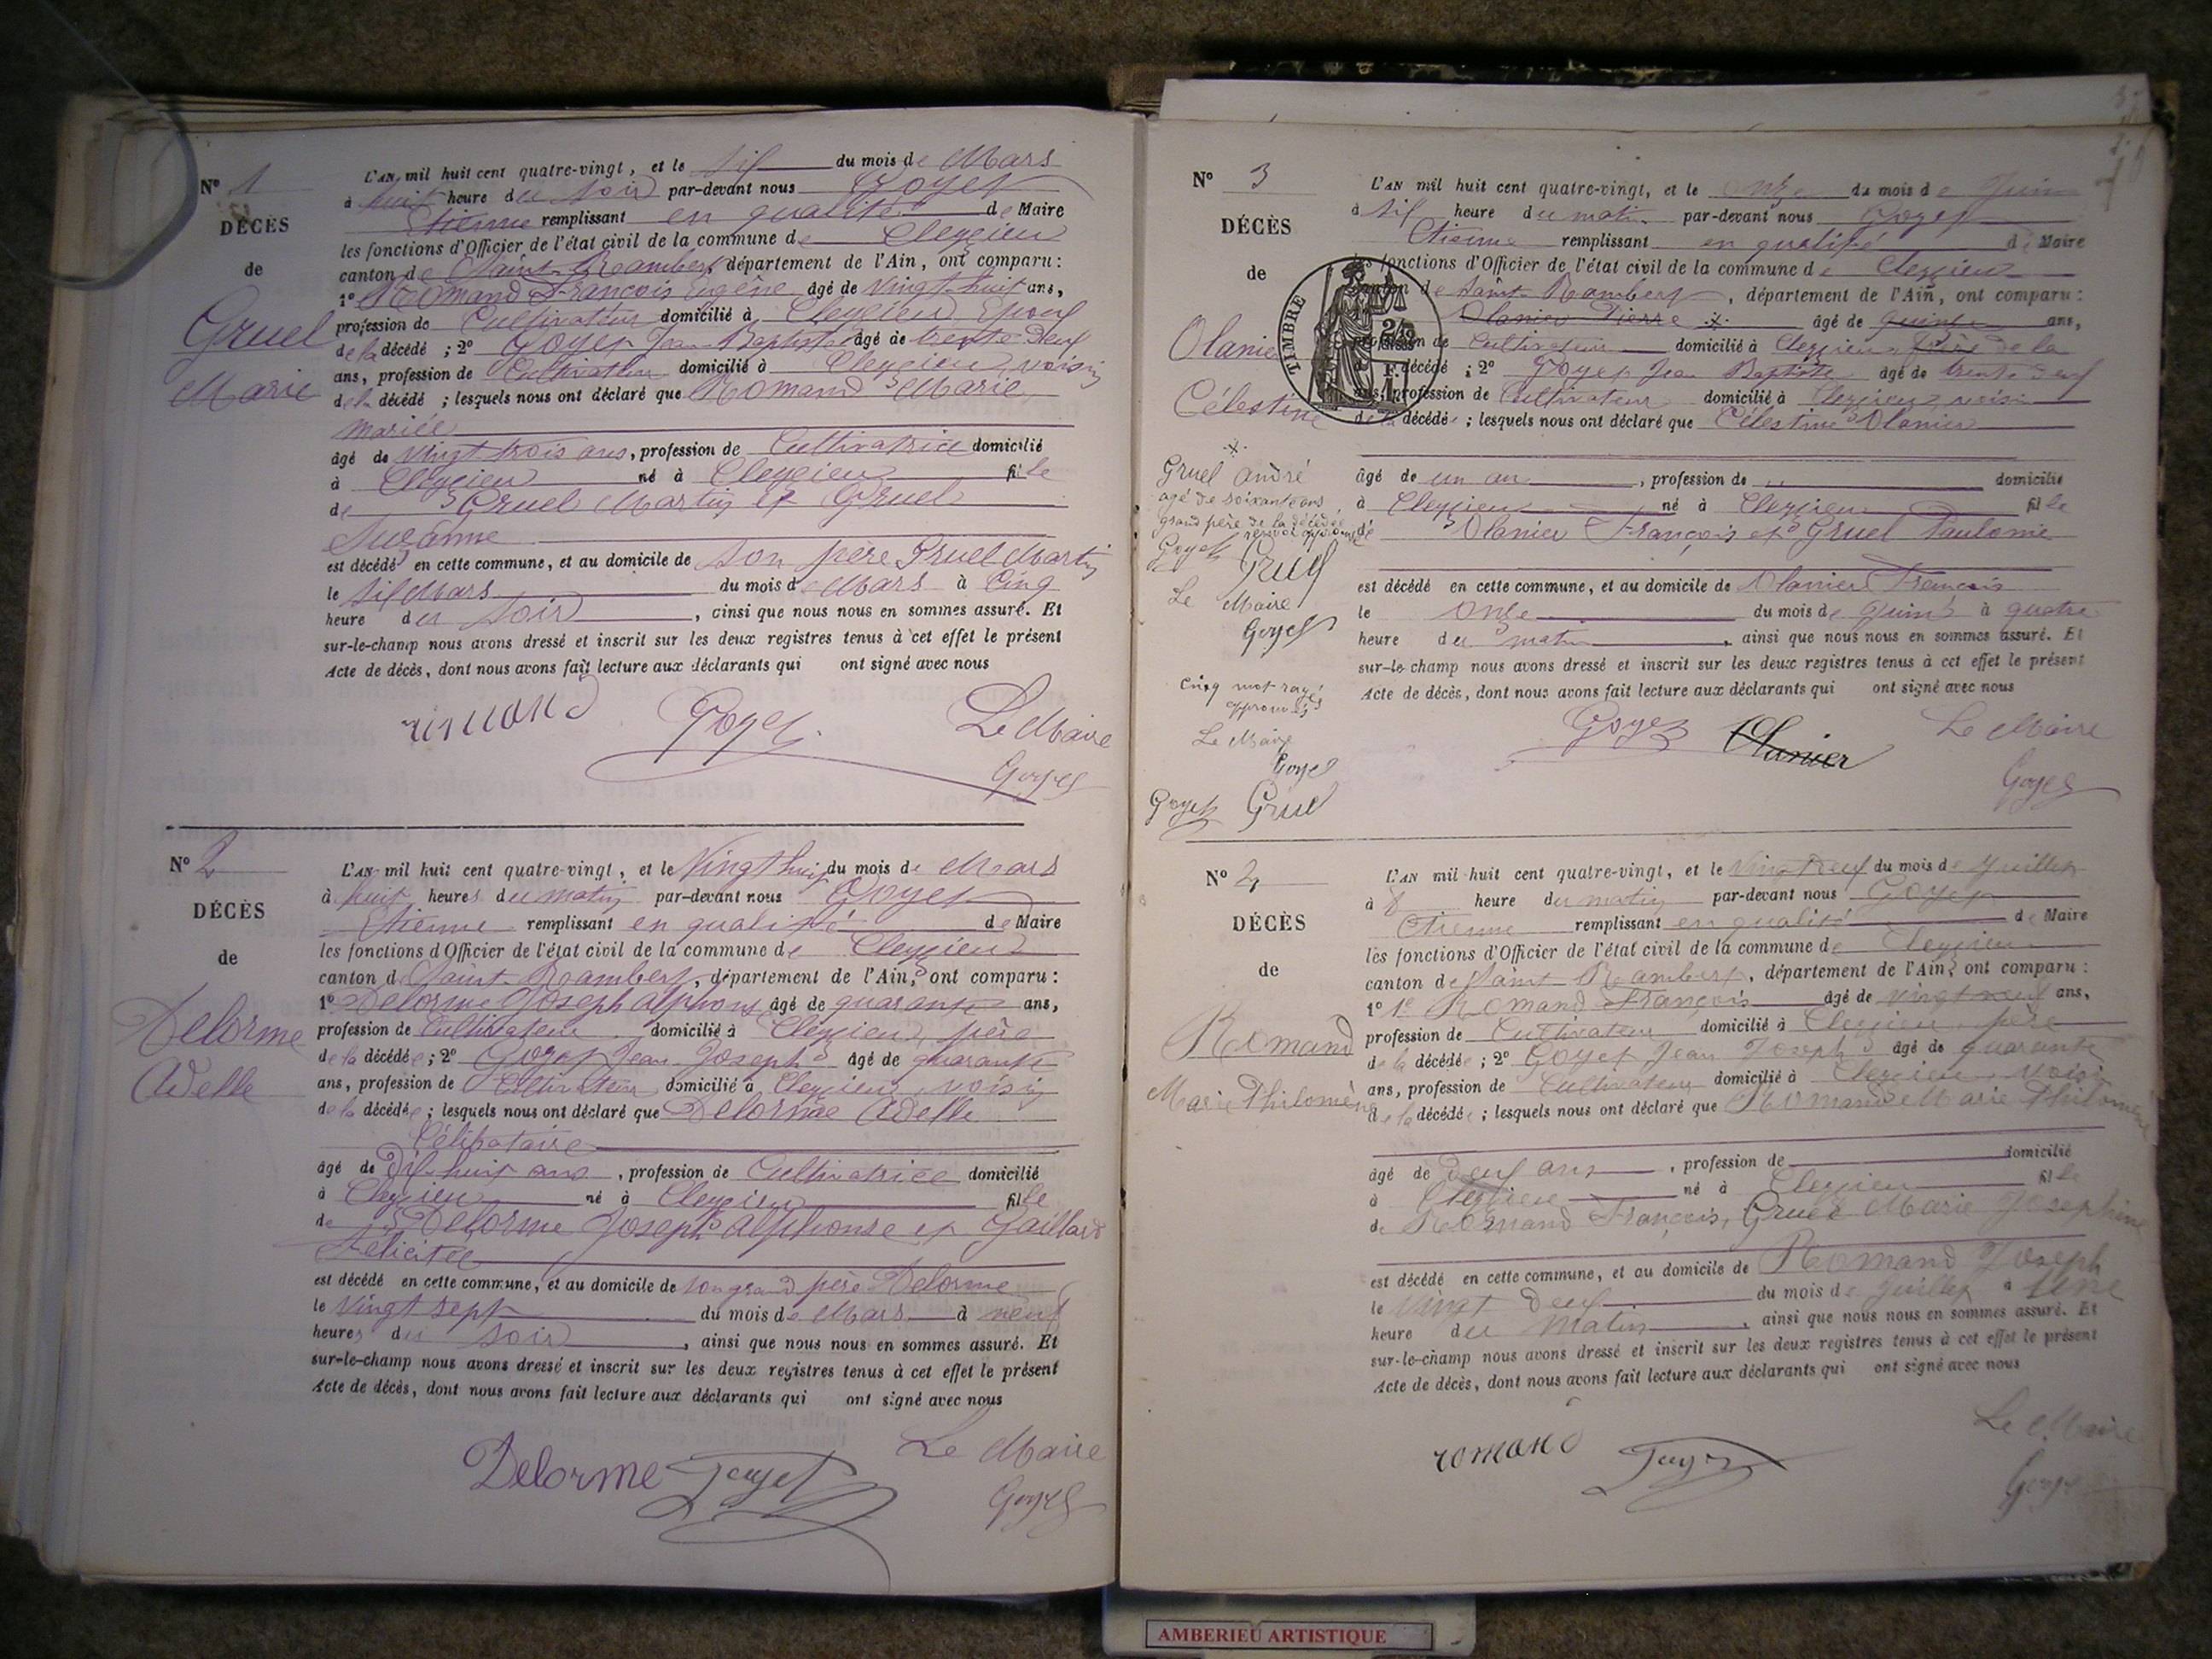 N° 1
DÉCÈS
de
Gruel
Marie
L'AN mil huit cent quatre-vingt, et le six du mois de Mars
à huit heure du soir par-devant nous Goyet
Etienne remplissant en qualité de Maire
les fonctions d'Officier de l'état civil de la commune de Cleyzieu
canton de Saint-Rambert, département de l'Ain, ont comparu :
1° Romand François Eugène âgé de vingt-huit ans,
profession de Cultivateur domicilié à Cleyzieu Epoux
de la décédé ; 2° Goyet Jean Baptiste âgé de trente deux
ans, profession de Cultivateur domicilié à Cleyzieu, voisin
de la décédé ; lesquels nous ont déclaré que Romand Marie
mariée
âgé de vingt trois ans, profession de Cultivatrice domicilié
à Cleyzieu né à Cleyzieu fille
de Gruel Martin et Gruel
Suzanne
est décédé en cette commune, et au domicile de son père Gruel Martin
le six Mars du mois de Mars à Cinq
heure du soir, ainsi que nous nous en sommes assuré. Et
sur-le-champ nous avons dressé et inscrit sur les deux registres tenus à cet effet le présent
Acte de décès, dont nous avons fait lecture aux déclarants qui ont signé avec nous
romand Goyet Le Maire
Goyet
N° 2
DÉCÈS
de
Delorme
Adelle
L'AN mil huit cent quatre-vingt, et le Vingt huit du mois de Mars
à huit heures du matin par-devant nous Goyet
Etienne remplissant en qualité de Maire
les fonctions d'Officier de l'état civil de la commune de Cleyzieu
canton de Saint-Rambert, département de l'Ain, ont comparu :
1° Delorme Joseph alphons âgé de quarante ans,
profession de Cultivateur domicilié à Cleyzieu, père
de la décédée ; 2° Goyet Jean Joseph âgé de quarante
ans, profession de Cultivateur domicilié à Cleyzieu, voisin
de la décédée ; lesquels nous ont déclaré que Delorme Adelle
Célibataire
âgé de Dix-huit ans, profession de Cultivatrice domicilié
à Cleyzieu né à Cleyzieu fille
de Delorme Joseph Alphonse et Gaillard
Félicitée
est décédé en cette commune, et au domicile de son grand père Delorme
le Vingt sept du mois de Mars à neuf
heures du soir, ainsi que nous nous en sommes assuré. Et
sur-le-champ nous avons dressé et inscrit sur les deux registres tenus à cet effet le présent
Acte de décès, dont nous avons fait lecture aux déclarants qui ont signé avec nous
Delorme Goyet Le Maire
Goyet
N° 3
DÉCÈS
de
Olanier
Célestine
Gruel André
agé de soixante ans
grand père de la décédée
renvoi approuvé
Goyet Gruel
Le Maire
Goyet
Cinq mot rayés
approuvés
Le Maire
Goyet
Goyet Gruel
L'AN mil huit cent quatre-vingt, et le onze du mois de Juin
à six heure du matin par-devant nous Goyet
Etienne remplissant en qualité de Maire
les fonctions d'Officier de l'état civil de la commune de Cleyzieu
canton de Saint-Rambert, département de l'Ain, ont comparu :
Olanier Pierre âgé de quinze ans,
profession de Cultivateur domicilié à Cleyzieu, père de la
décédé ; 2° Goyet Jean Baptiste âgé de trente deux
ans, profession de Cultivateur domicilié à Cleyzieu, voisin
de la décédée ; lesquels nous ont déclaré que Célestine Olanier
TIMBRE
âgé de un an, profession de domicilié
à Cleyzieu né à Cleyzieu fille
de Olanier François et Gruel Paulonie
est décédé en cette commune, et au domicile de Olanier François
le onze du mois de Juin à quatre
heure du matin, ainsi que nous nous en sommes assuré. Et
sur-le-champ nous avons dressé et inscrit sur les deux registres tenus à cet effet le présent
Acte de décès, dont nous avons fait lecture aux déclarants qui ont signé avec nous
Goyet Olanier Le Maire
Goyet
N° 4
DÉCÈS
de
Romand
Marie Philomène
L'AN mil huit cent quatre-vingt, et le Vingt Deux du mois de Juillet
à 8 heure du matin par-devant nous Goyet
Etienne remplissant en qualité de Maire
les fonctions d'Officier de l'état civil de la commune de Cleyzieu
canton de Saint Rambert, département de l'Ain, ont comparu :
1° 1° Romand François âgé de vingt neuf ans,
profession de Cultivateur domicilié à Cleyzieu, père
de la décédée ; 2° Goyet Jean Joseph âgé de quarante
ans, profession de Cultivateur domicilié à Cleyzieu, voisin
de la décédée ; lesquels nous ont déclaré que Romand Marie Philomène
âgé de Deux ans, profession de domicilié
à Cleyzieu né à Cleyzieu fille
de Romand François, Gruel Marie Josephine
est décédé en cette commune, et au domicile de Romand Joseph
le Vingt Deux du mois de Juillet à Une
heure du Matin, ainsi que nous nous en sommes assuré. Et
sur-le-champ nous avons dressé et inscrit sur les deux registres tenus à cet effet le présent
Acte de décès, dont nous avons fait lecture aux déclarants qui ont signé avec nous
romand Goyet Le Maire
Goyet
AMBERIEU ARTISTIQUE